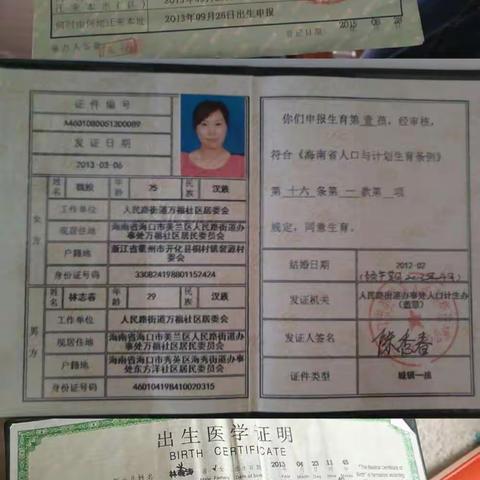 2013年09月26日出生申报
何时由何地迁来本址
2013年09月26日出生申报
承办人签章
登记日期
证件编号
A4601080051300089
发证日期
2013-03-06
女方
姓名
年龄
25
民族
汉族
工作单位
人民路街道万福社区居委会
现居住地
海南省海口市美兰区人民路街道办事处万福社区居民委员会
户籍地
浙江省衢州市开化县桐村镇裴源村委会
身份证号码
330824198801152424
男方
姓名
林志春
年龄
29
民族
汉族
工作单位
人民路街道万福社区居委会
现居住地
海南省海口市美兰区人民路街道办事处万福社区居民委员会
户籍地
海南省海口市秀英区海秀街道办事处东方洋社区居民委员会
身份证号码
460104198410020315
你们申报生育第壹孩，经审核，
符合《海南省人口与计划生育条例》
第十六条第一款第 项
规定，同意生育。
结婚日期
2012-02
发证机关
人民路街道办事处人口计生办
(盖章)
发证人签名
证件类型
城镇一孩
出生医学证明
BIRTH CERTIFICATE
2013 04 23 11 45
"The Medical Certificate of